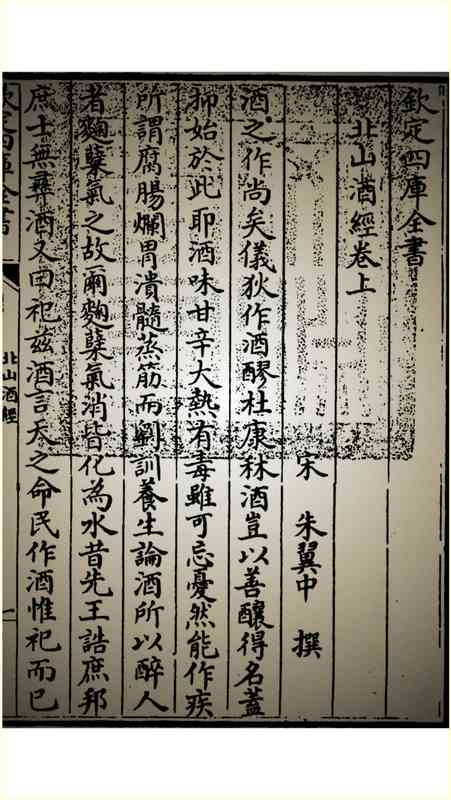 欽定四庫全書
北山酒經卷上
宋 朱翼中 撰
酒之作尚矣儀狄作酒醪杜康秫酒豈以善釀得名蓋
抑始於此耶酒味甘辛大熱有毒雖可忘憂然能作疾
所謂腐腸爛胃潰髓蒸筋而劉訓養生論酒所以醉人
者麴糵氣之故爾麴糵氣消皆化為水昔先王誥庶邦
庶士無彝酒又曰祀茲酒言天之命民作酒惟祀而已
欽定四庫全書
北山酒經
一